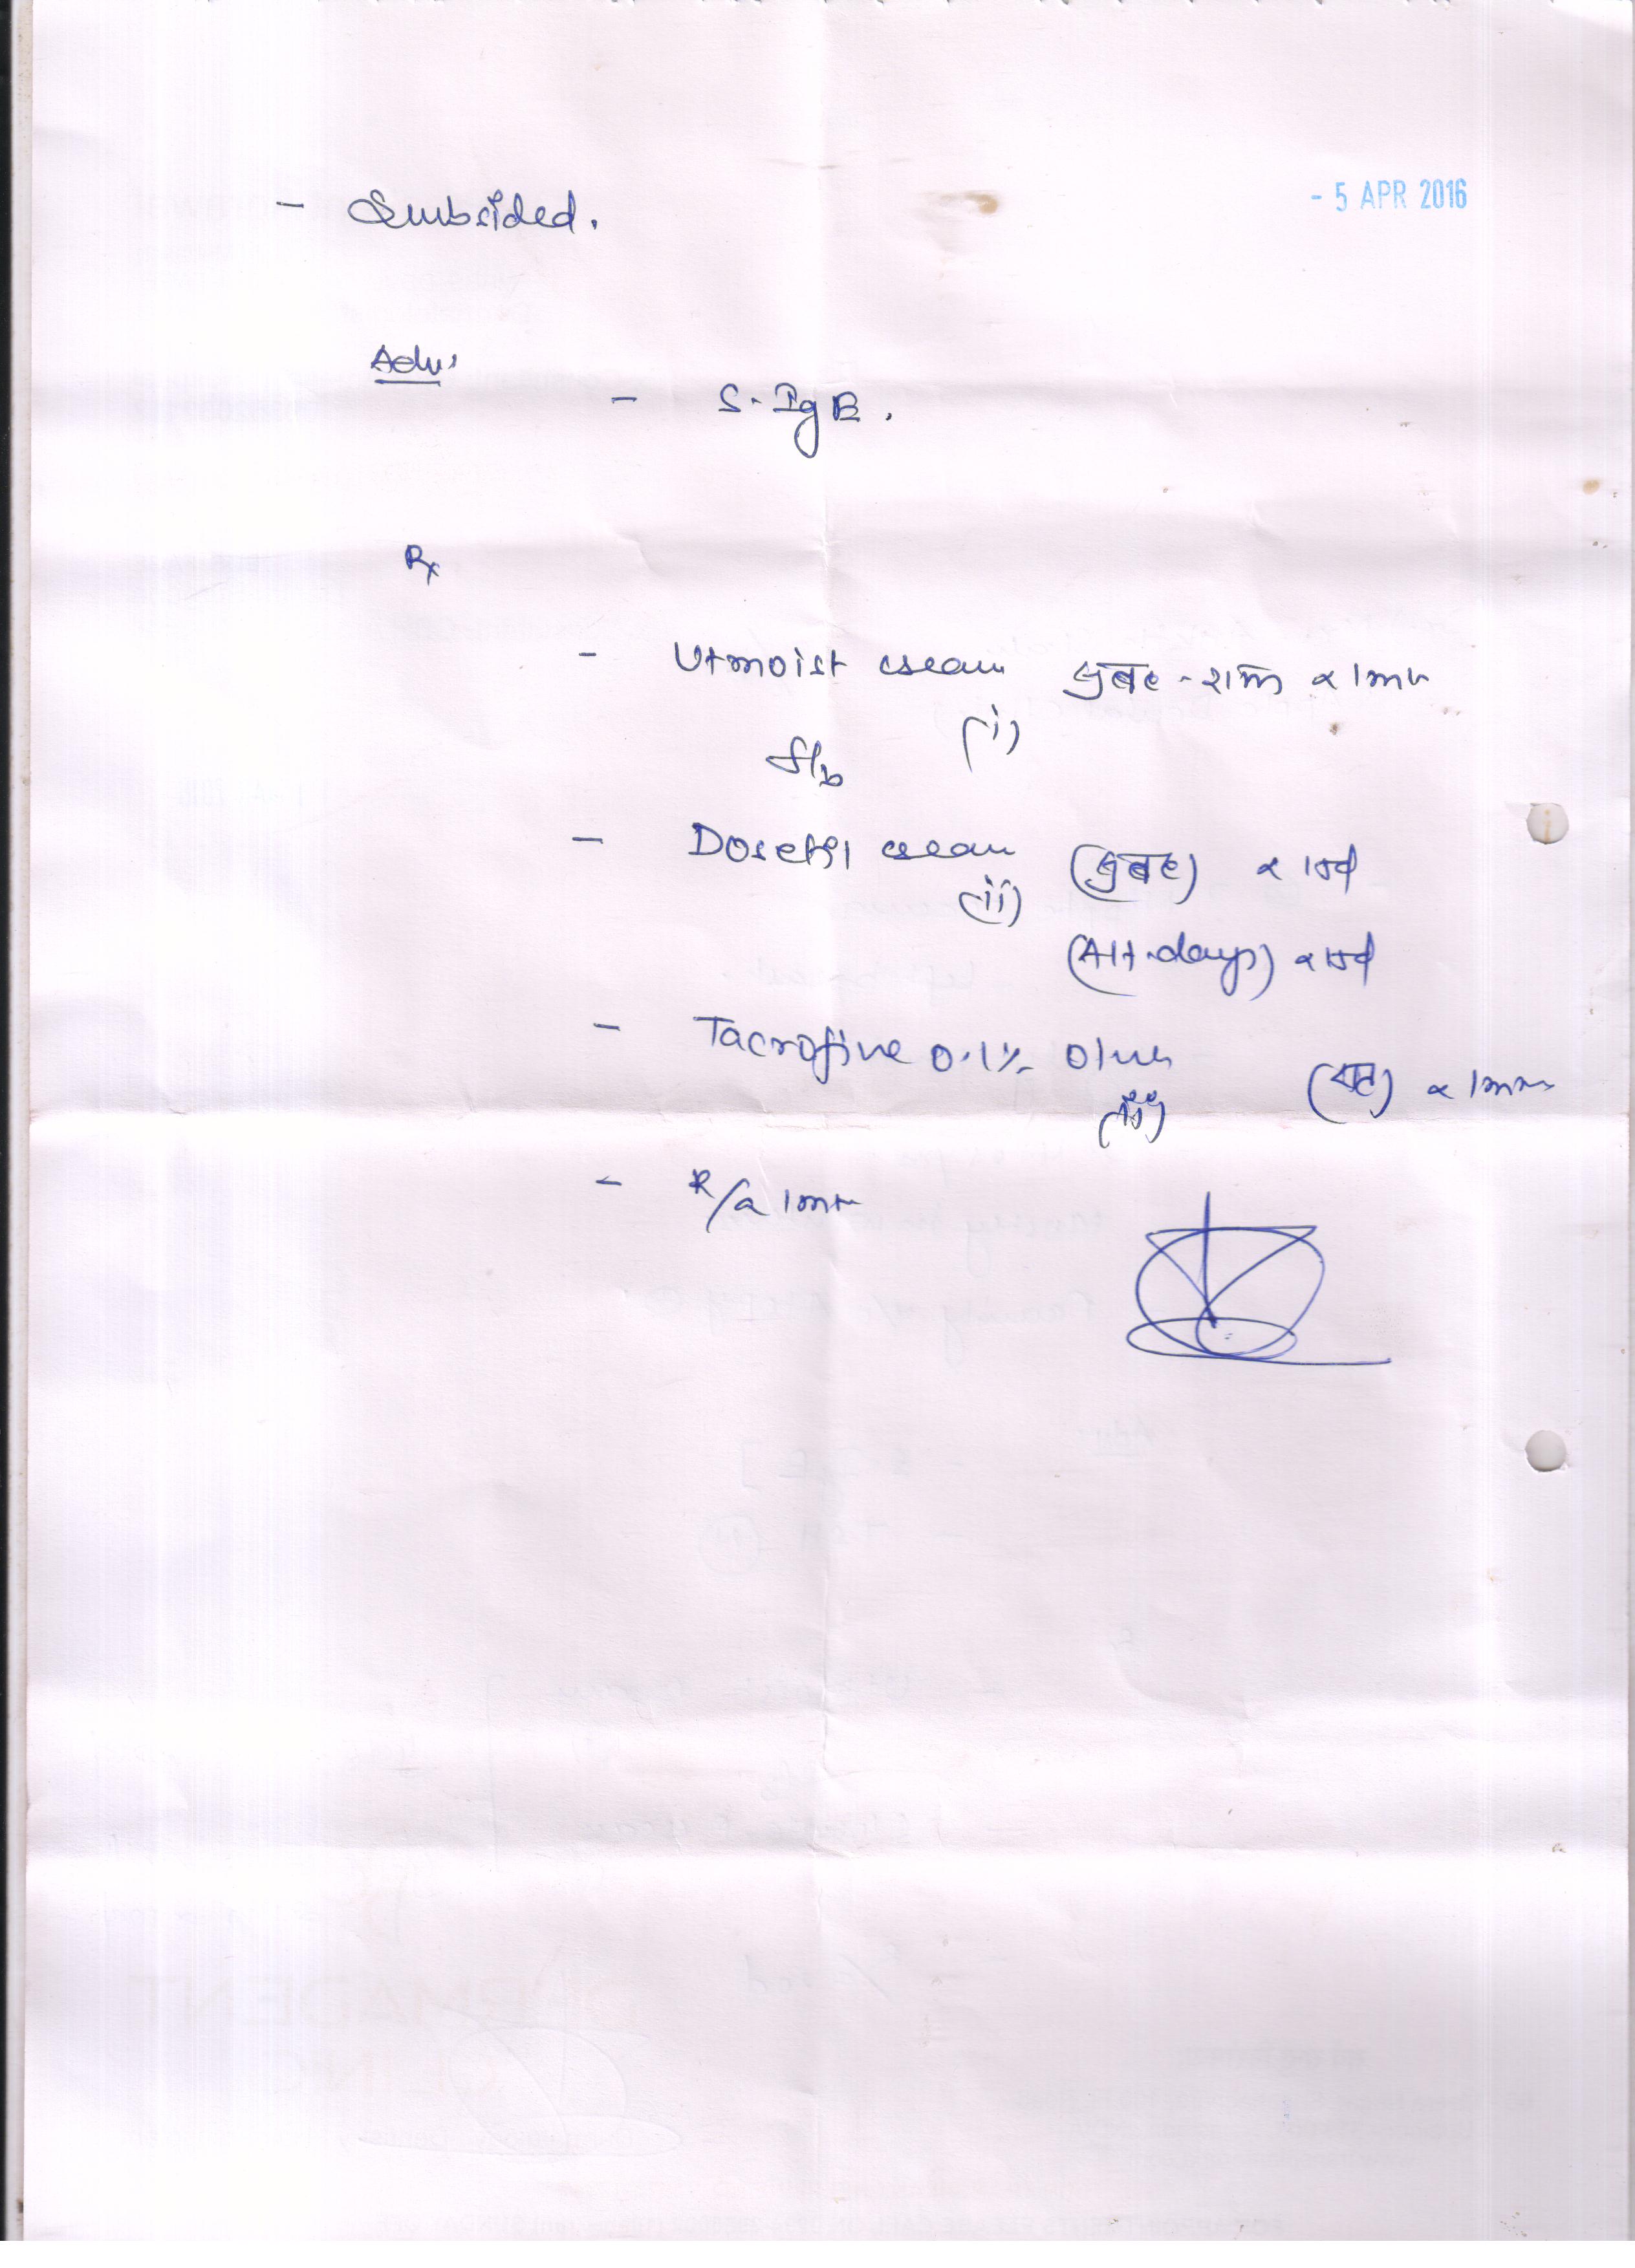 - 5 APR 2016
- Subsided.
Adv:
- S. IgE.
Rx
- Utmoist cream सुबह - शाम x 1mth
(i)
f/b
- cream (सुबह) x 15d
(ii)
(Alt. days) x 15d
- Tacrofine 0.1% Oint
(iii) (रात) x 1mth
- R/a 1mth